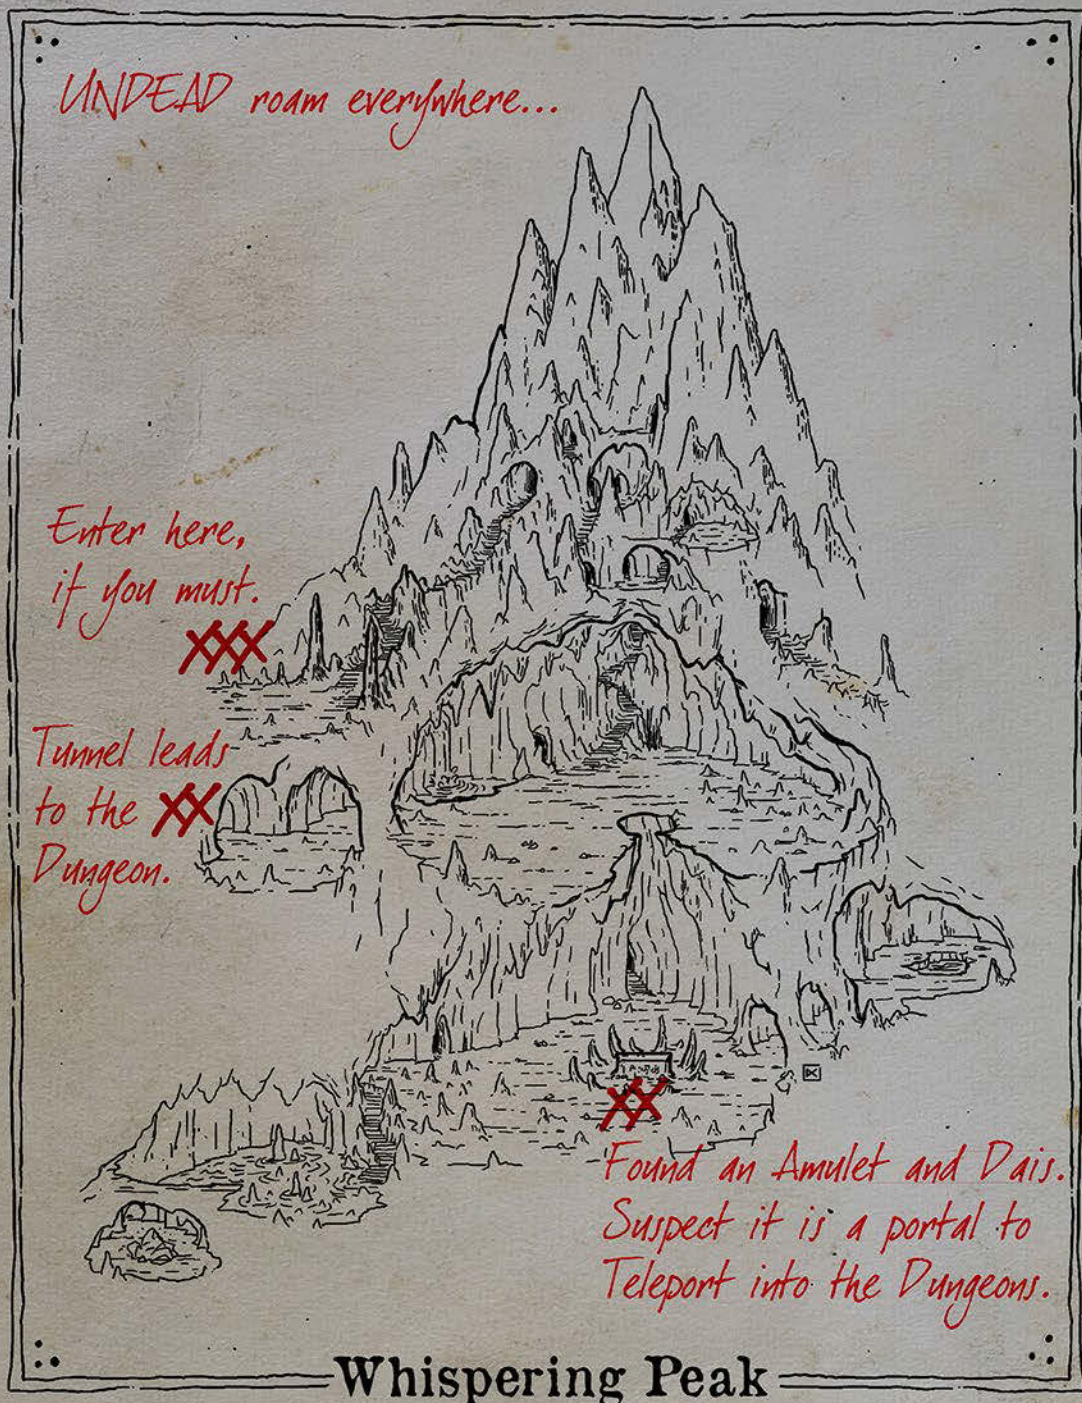 UNDEAD roam everywhere...
Enter here,
if you must.
XXX
Tunnel leads
to the XX
Dungeon.
XX
Found an Amulet and Dais.
Suspect it is a portal to
Teleport into the Dungeons.
Whispering Peak